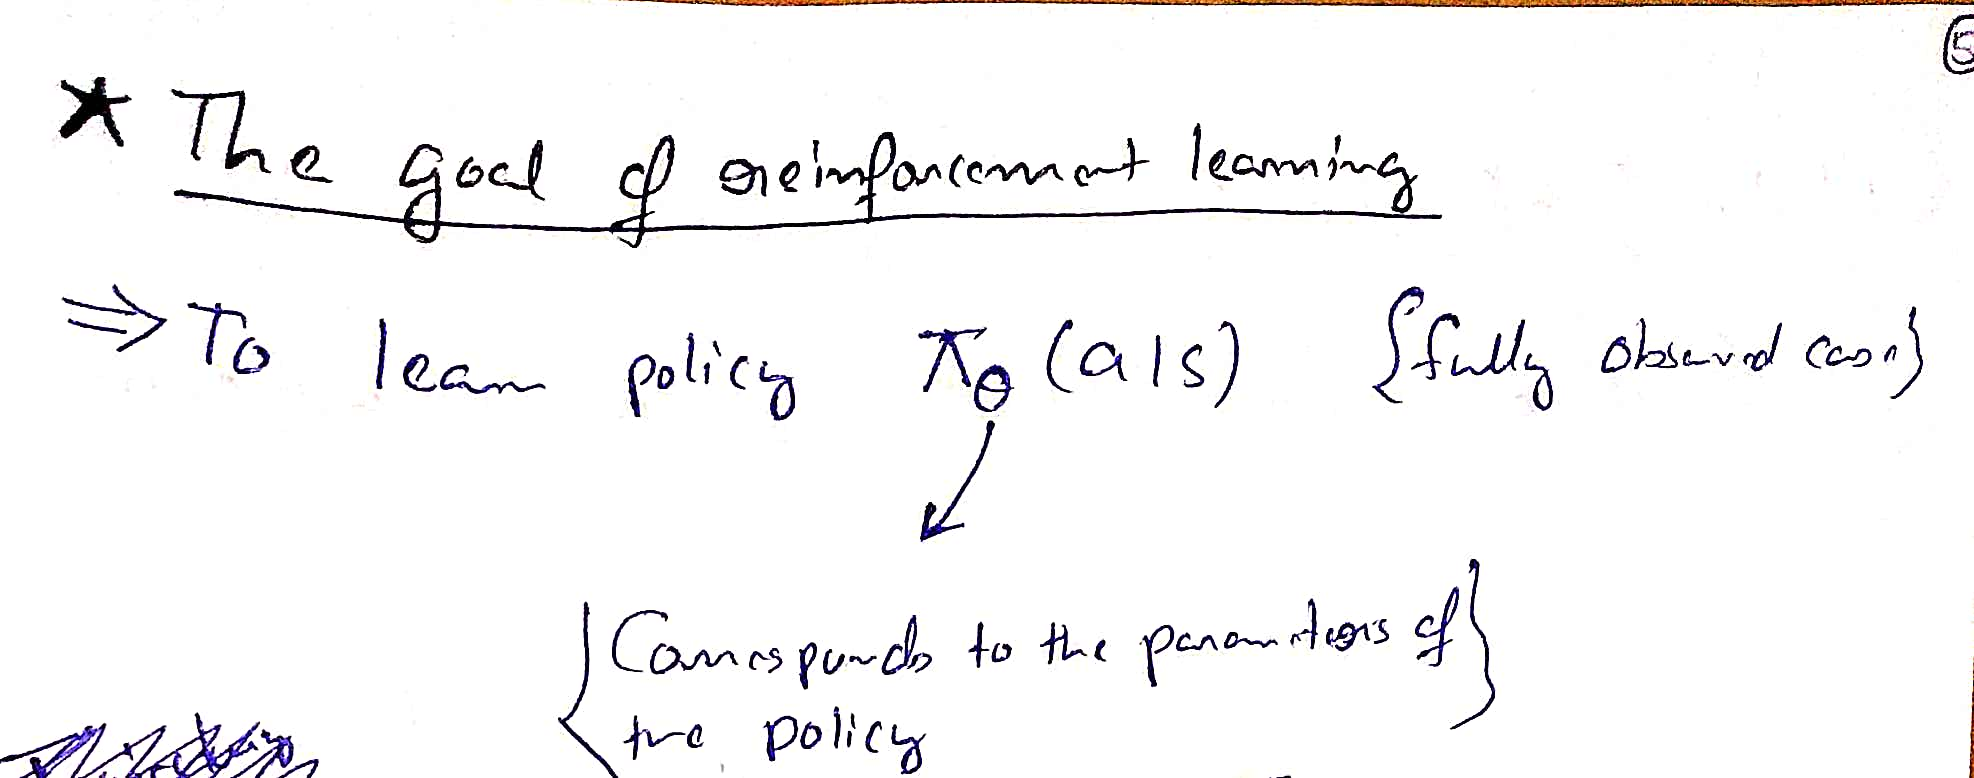 ⑤
* The goal of reinforcement learning
⇒ To learn policy π_θ (a|s) {fully observed case}
{Corresponds to the parameters of}
the policy